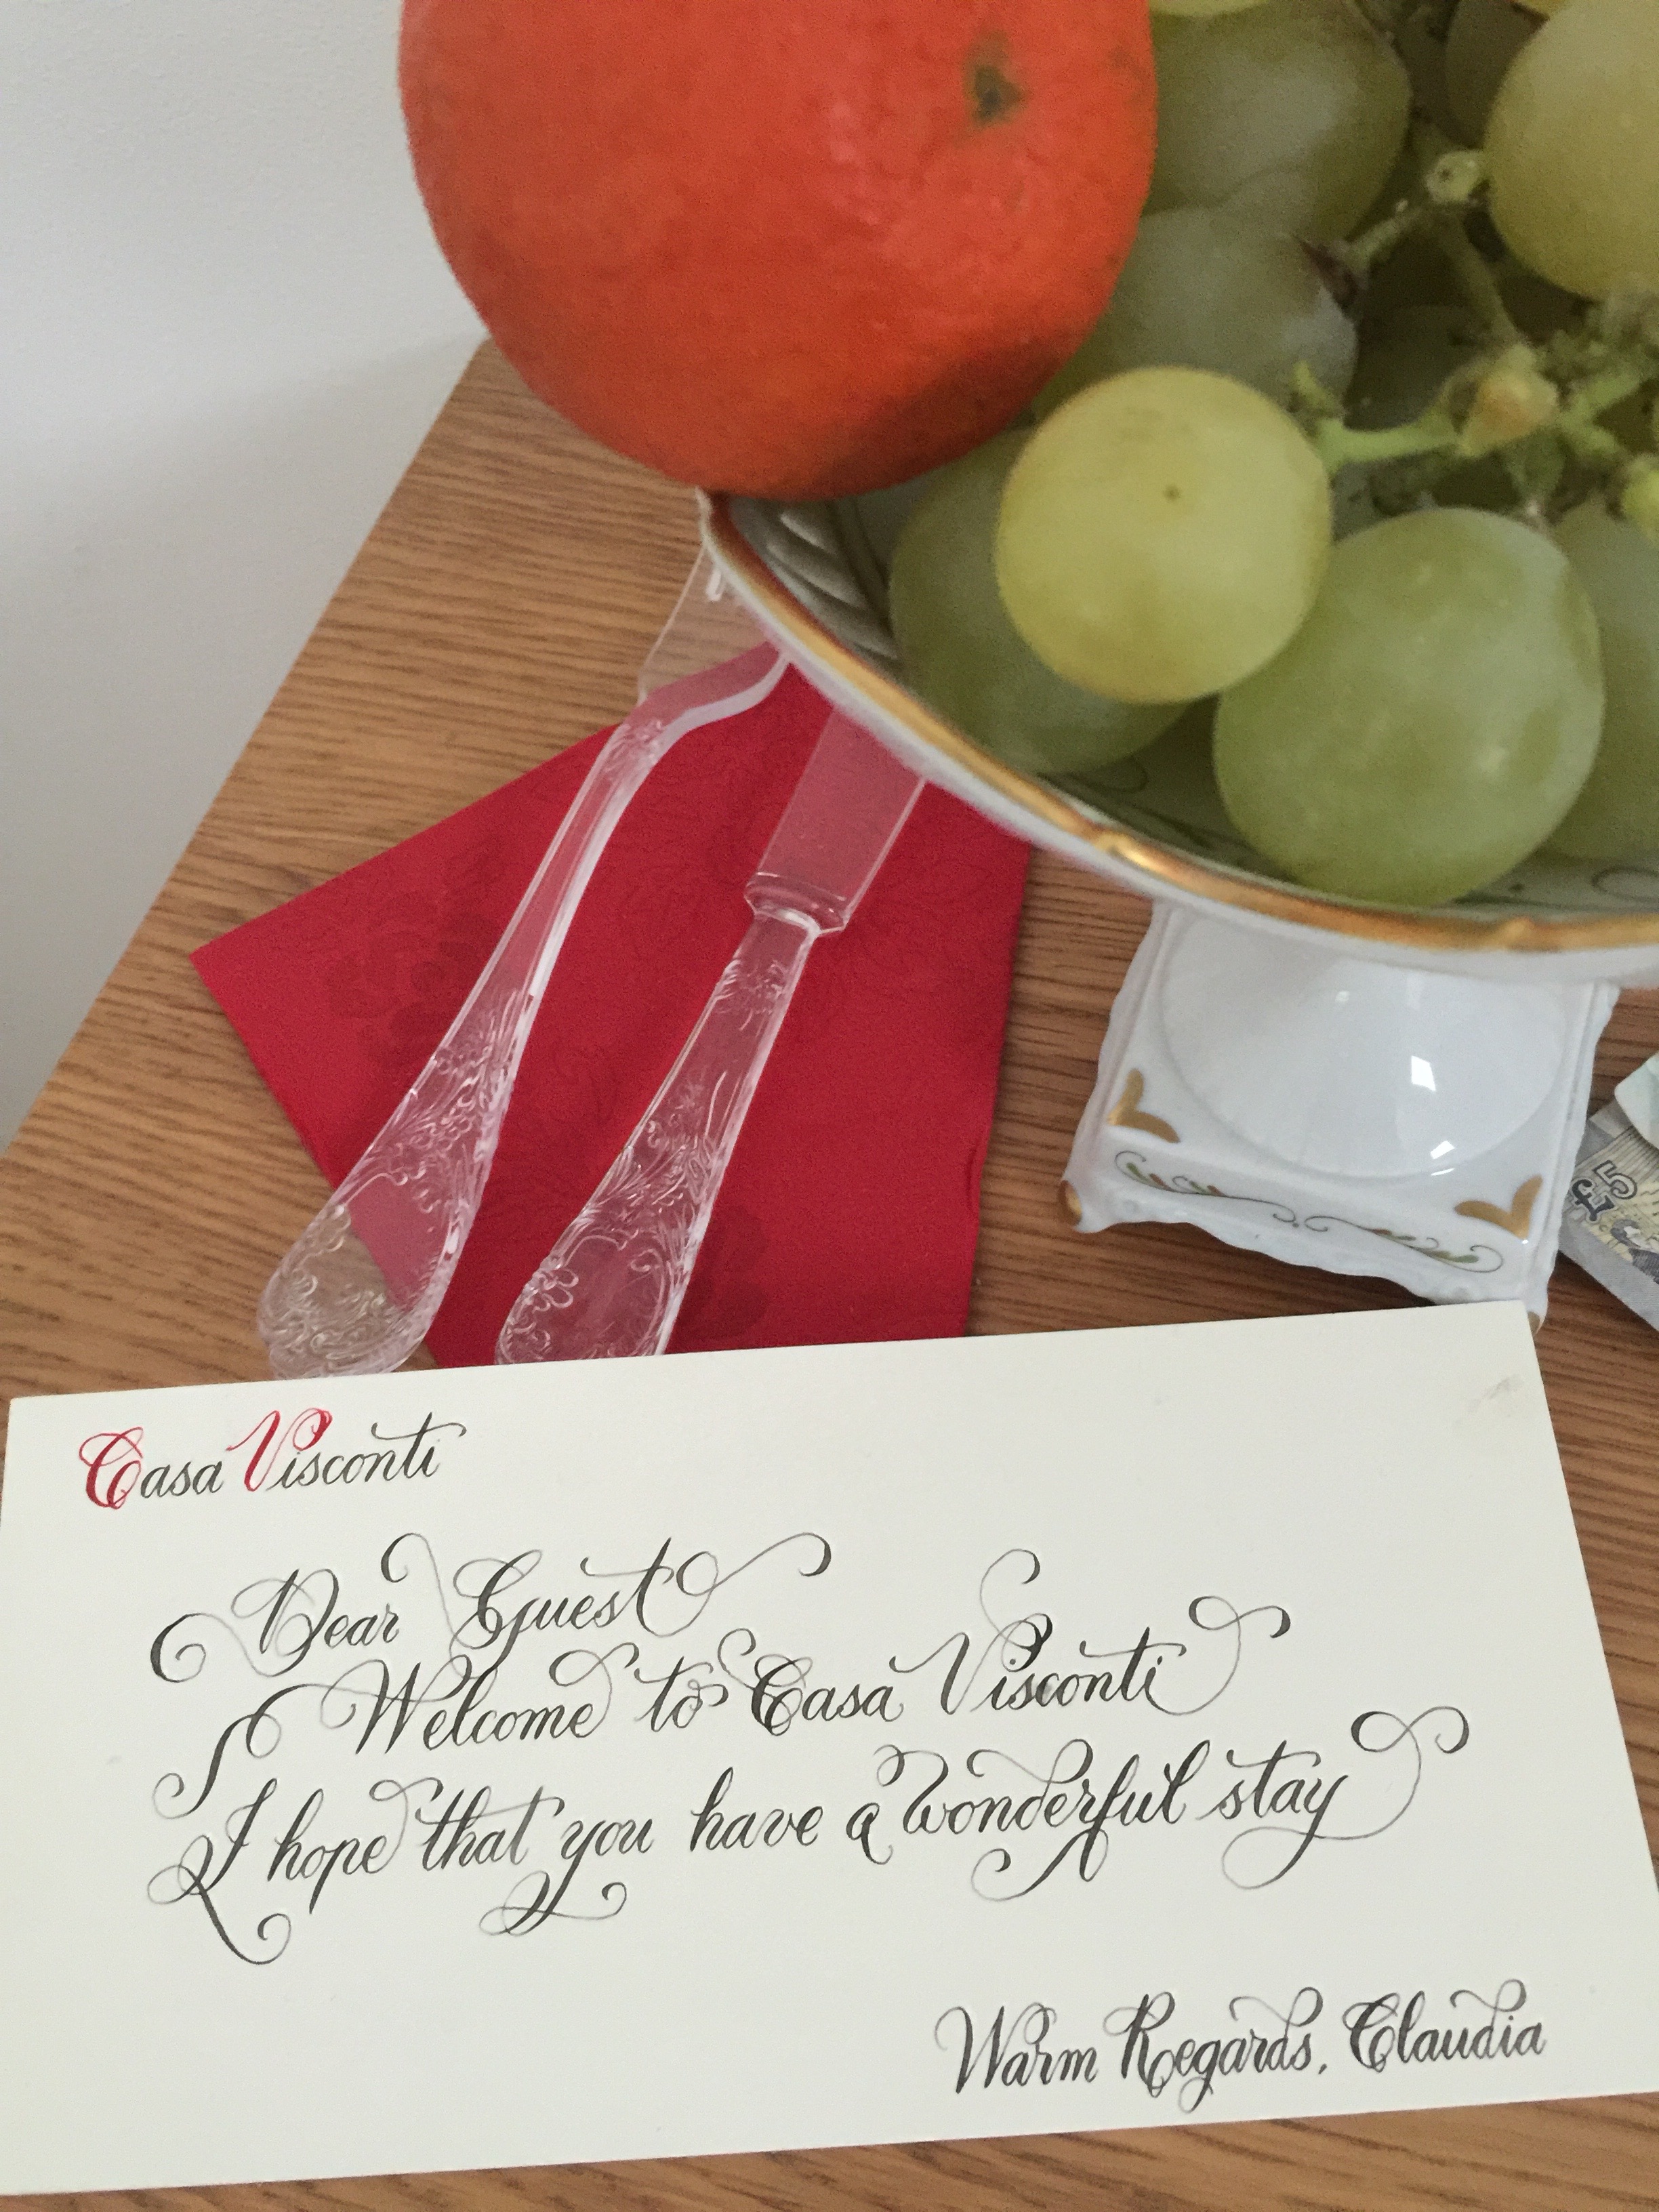 £5
Casa Visconti
Dear Guest
Welcome to Casa Visconti
I hope that you have a wonderful stay
Warm Regards, Claudia